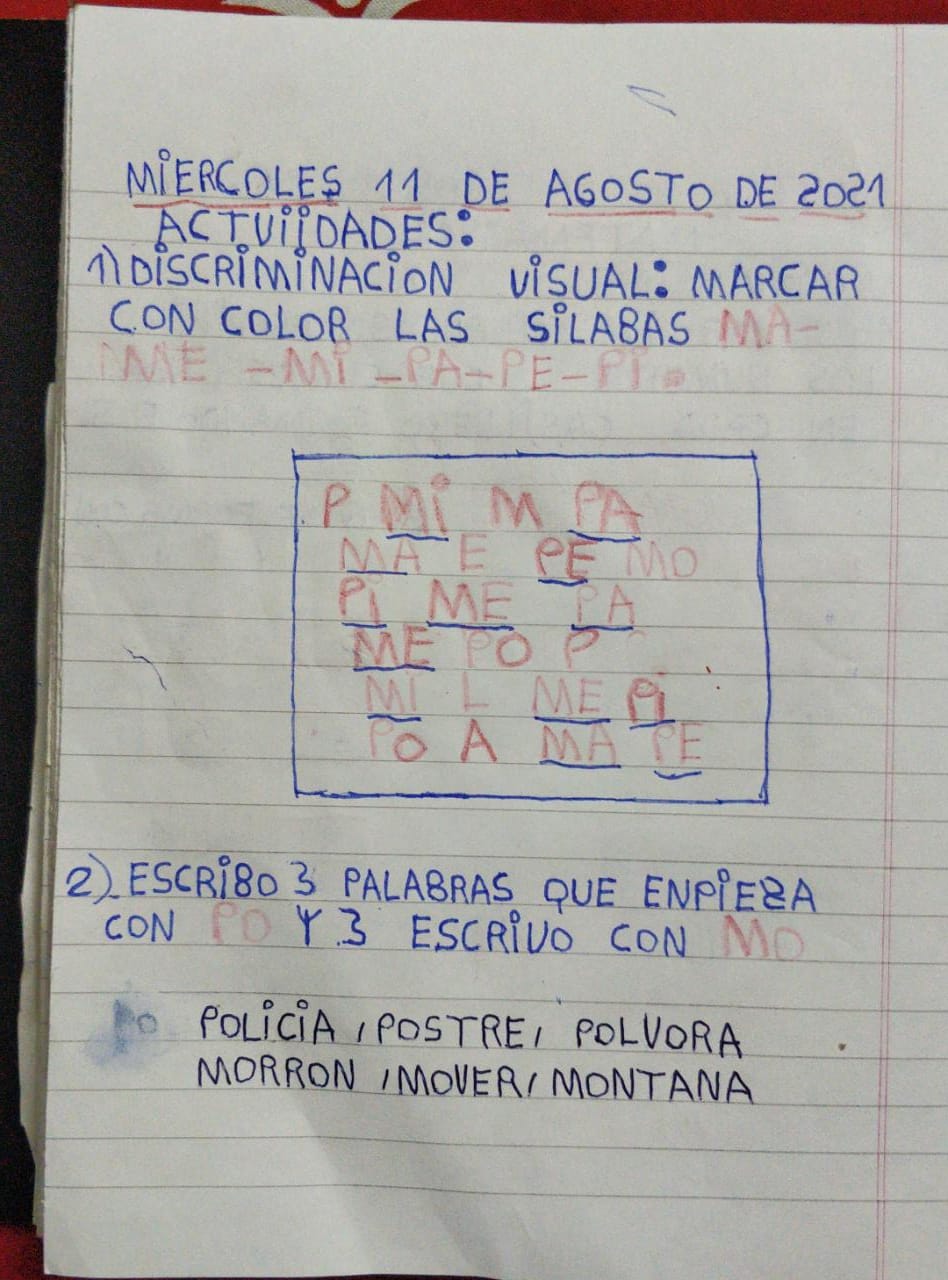 MiERCOLES 11 DE AGOSTO DE 2021
ACTVIIDADES:
1) DISCRIMINACION VISUAL: MARCAR
CON COLOR LAS SILABAS MA-
ME - Mi - PA - PE - Pi.
P Mi M PA
MA E PE MO
Pi ME PA
ME PO P
Mi L ME Pi
PO A MA PE
2) ESCRIBO 3 PALABRAS QUE ENPIEZA
CON PO Y 3 ESCRIVO CON MO
Po POLICIA, POSTRE, POLVORA
MORRON, MOVER, MONTANA